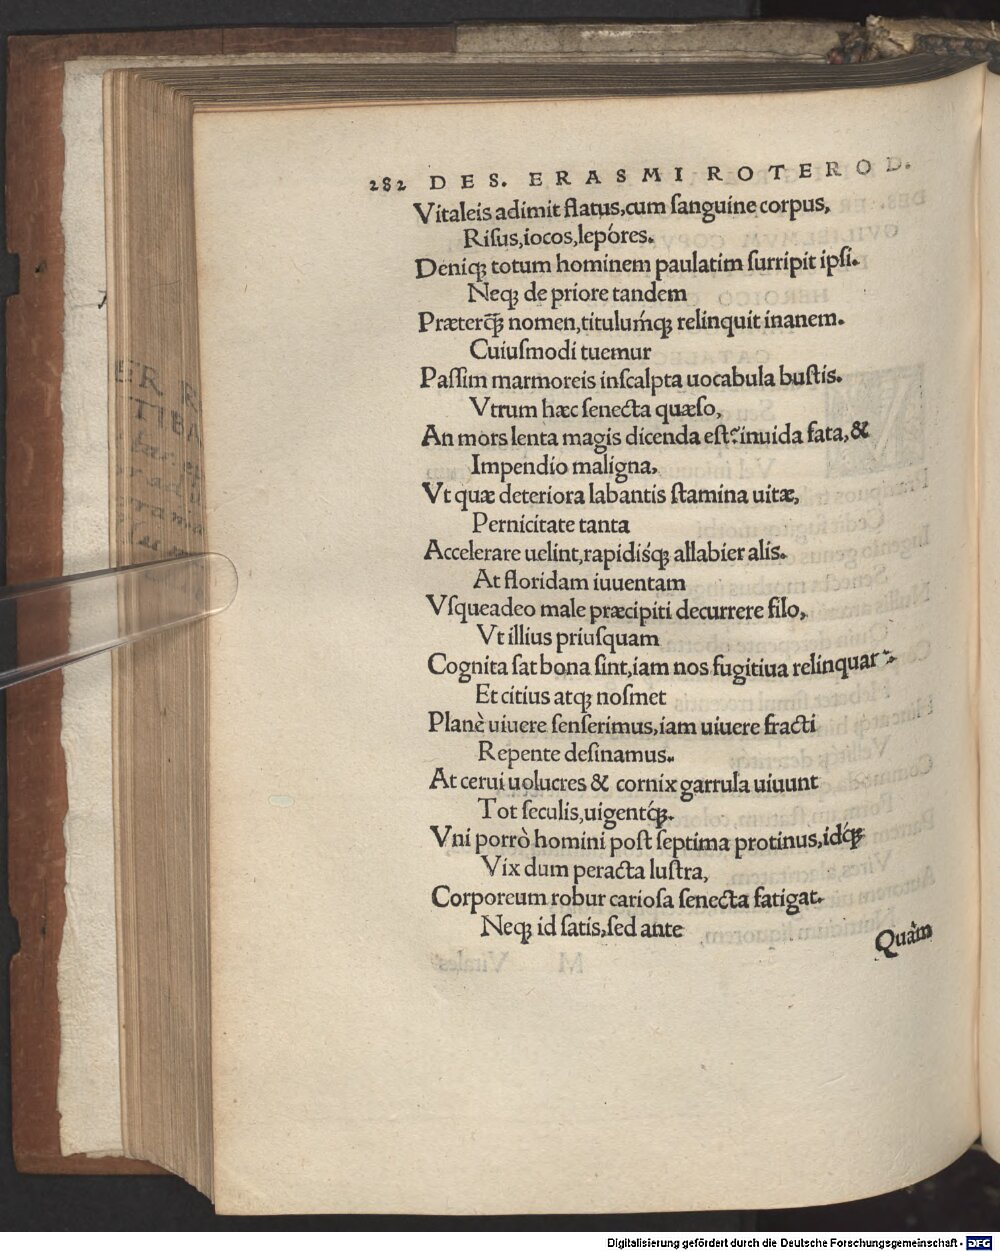 282 DES. ERASMI ROTEROD.
Vitaleis adimit flatus, cum sanguine corpus,
Risus, iocos, lepóres.
Deniqꝫ totum hominem paulatim surripit ipsi.
Neqꝫ de priore tandem
Præterꝙ̃ nomen, titulumq́ꝫ relinquit inanem.
Cuiusmodi tuemur
Passim marmoreis inscalpta uocabula bustis.
Vtrum hæc senecta quæso,
An mors lenta magis dicenda est? inuida fata, &
Impendio maligna,
Vt quæ deteriora labantis stamina uitæ,
Pernicitate tanta
Accelerare uelint, rapidisq́ꝫ allabier alis.
At floridam iuuentam
Vsqueadeo male præcipiti decurrere filo,
Vt illius priusquam
Cognita sat bona sint, iam nos fugitiua relinquant:
Et citius atqꝫ nosmet
Planè uiuere senserimus, iam uiuere fracti
Repente desinamus.
At cerui uolucres & cornix garrula uiuunt
Tot seculis, uigentq́ꝫ.
Vni porrò homini post septima protinus, idq́ꝫ
Vix dum peracta lustra,
Corporeum robur cariosa senecta fatigat.
Neqꝫ id satis, sed ante
Quàm
Digitalisierung gefördert durch die Deutsche Forschungsgemeinschaft - DFG